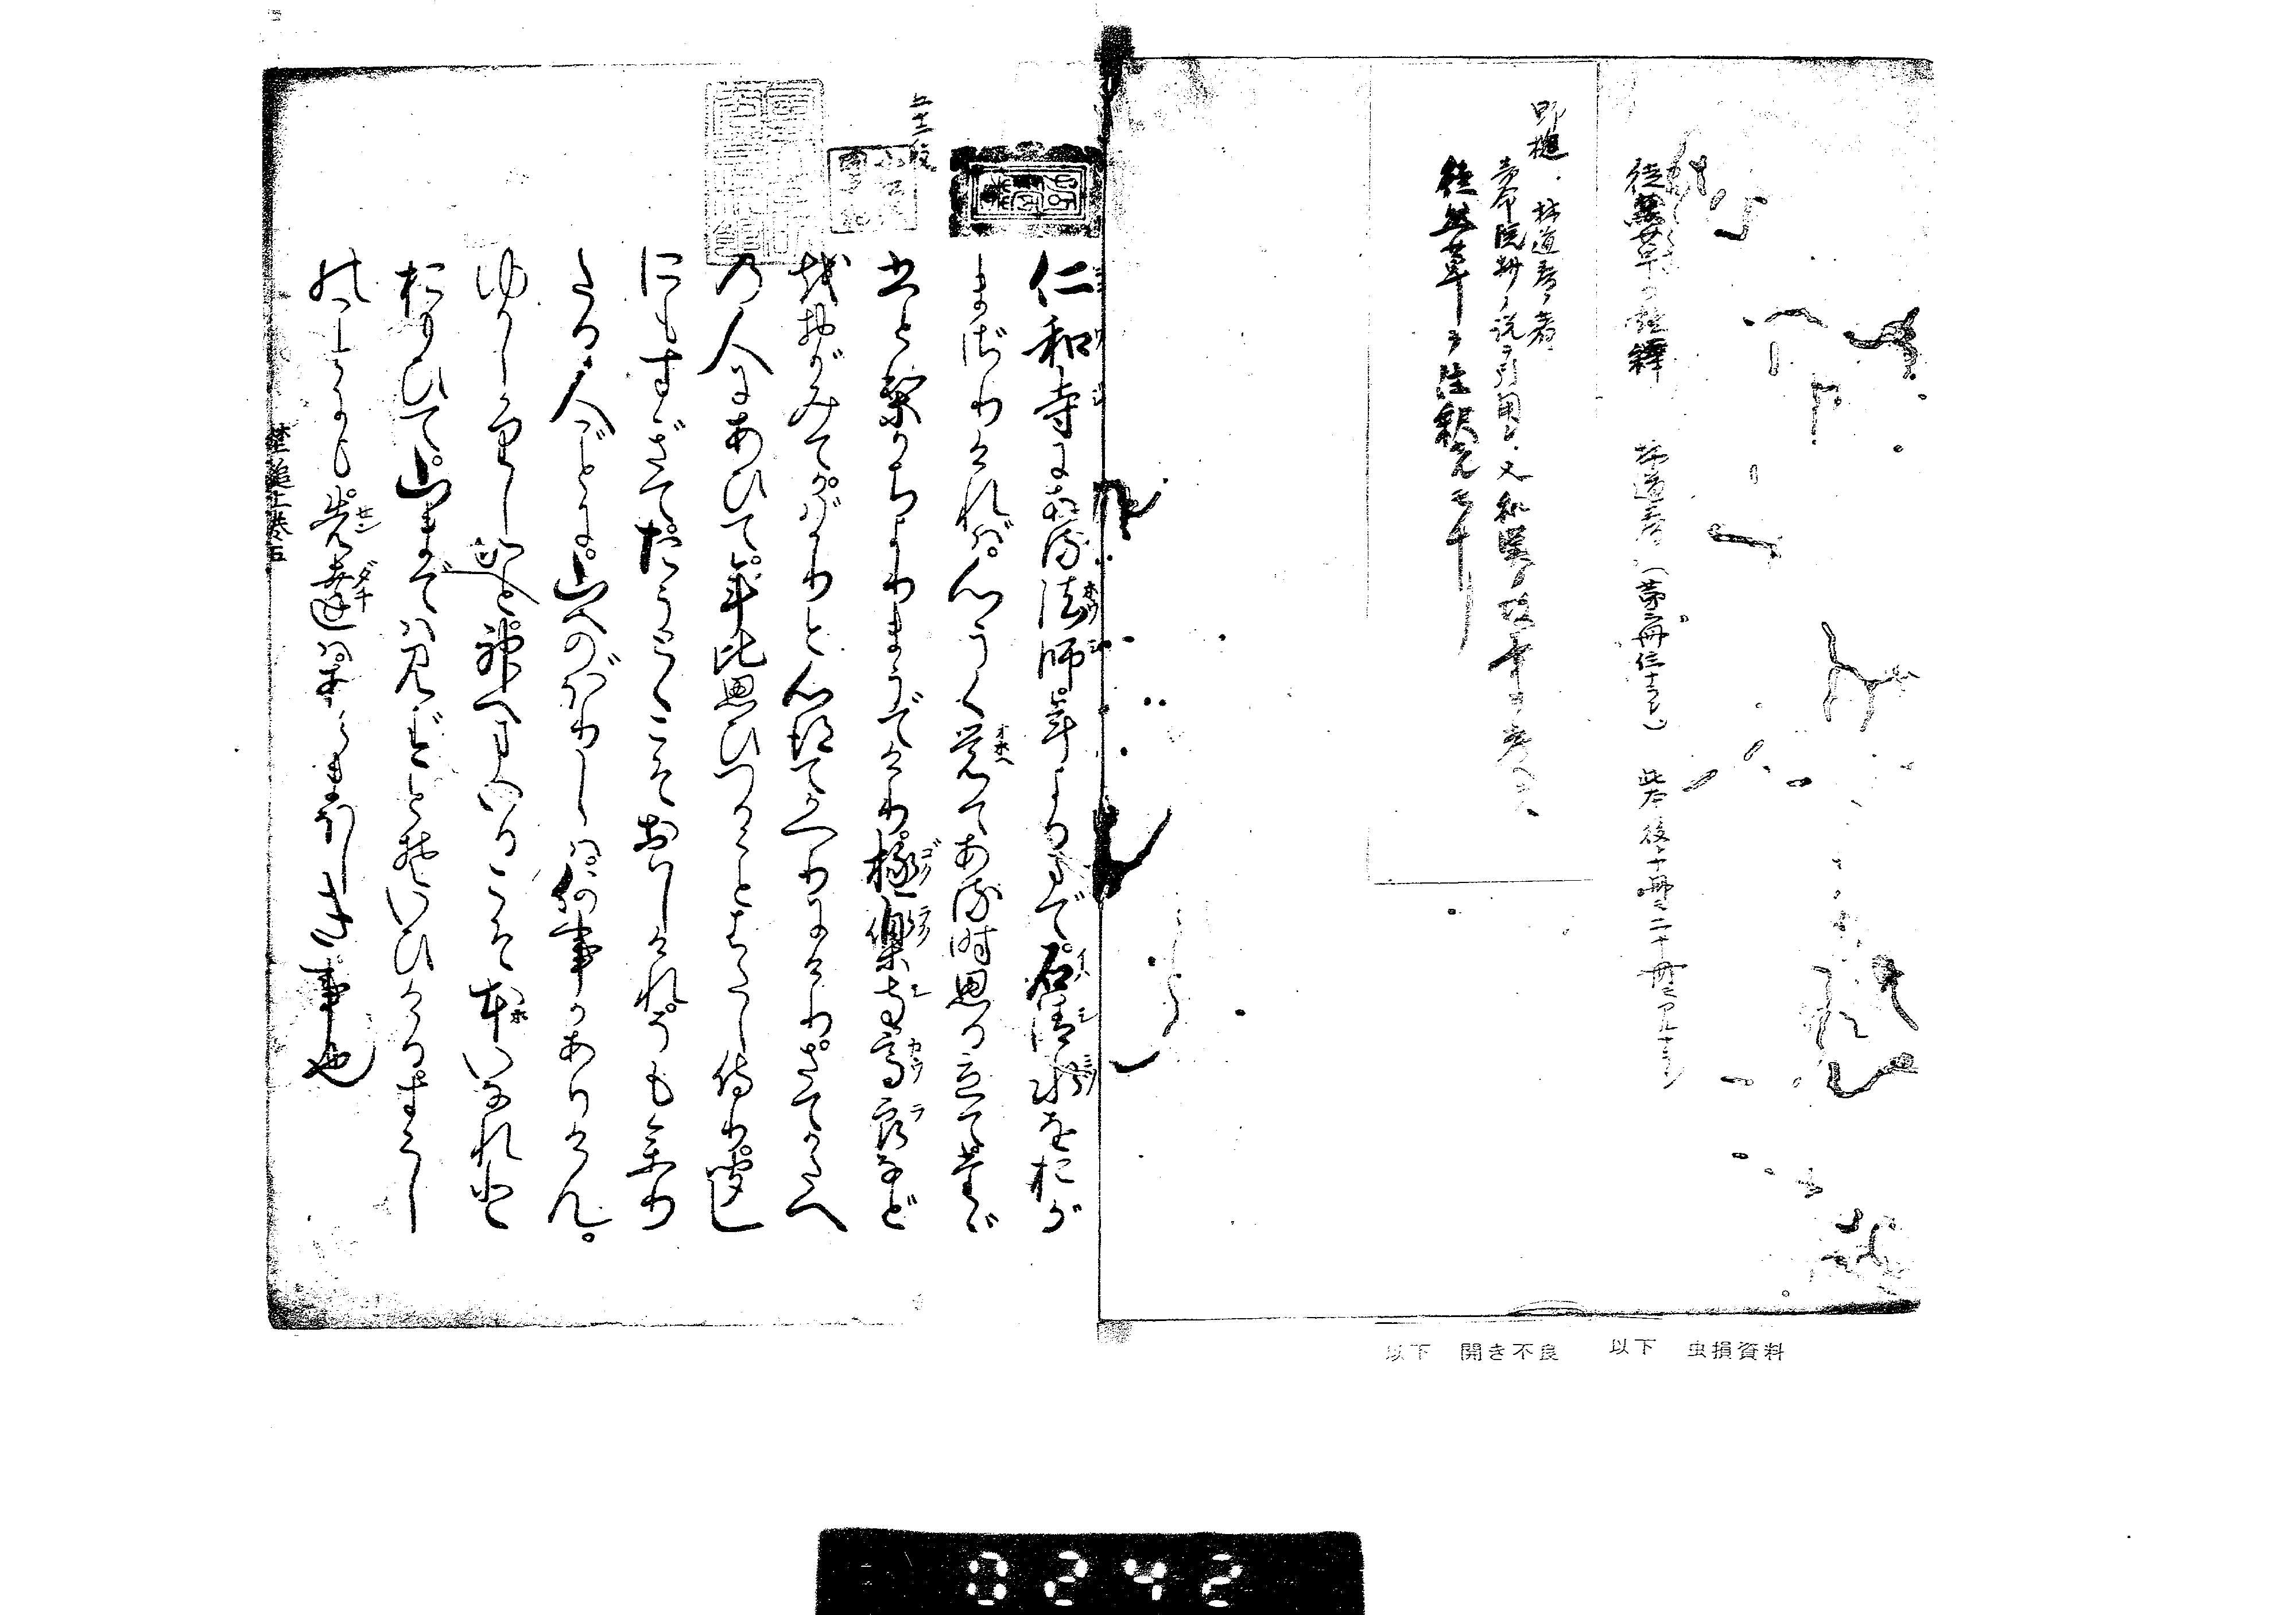 徒然草の註釋 林道春(第三冊
野槌 林道春ノ著
壽命院抄ノ説ヲ引用シ又和漢ノ故事ヲ考ヘ
徒然草ヲ注釈
五十二段
仁和寺に有法師年よるまで石清水をおが
まざりければ心うく覚てある時思ひ立て
ひとりかちよりまうでけり極楽寺高良など
をおがみてかばかりと心得てかへりにけりさてかたへ
の人にあひて年比思ひつることはたし侍りぬ聞し
にもすぎてたうとくこそおはしけれそも参り
たる人ごとに山へのぼりしは何事かありけん
ゆかしかりしかど神へまいるこそ本いなれと
おもひて山まではみずとぞいひけるすこし
のことにも先達はあらまほしき事也
埜槌上巻五
以下 虫損資料
以下 開き不良
0242